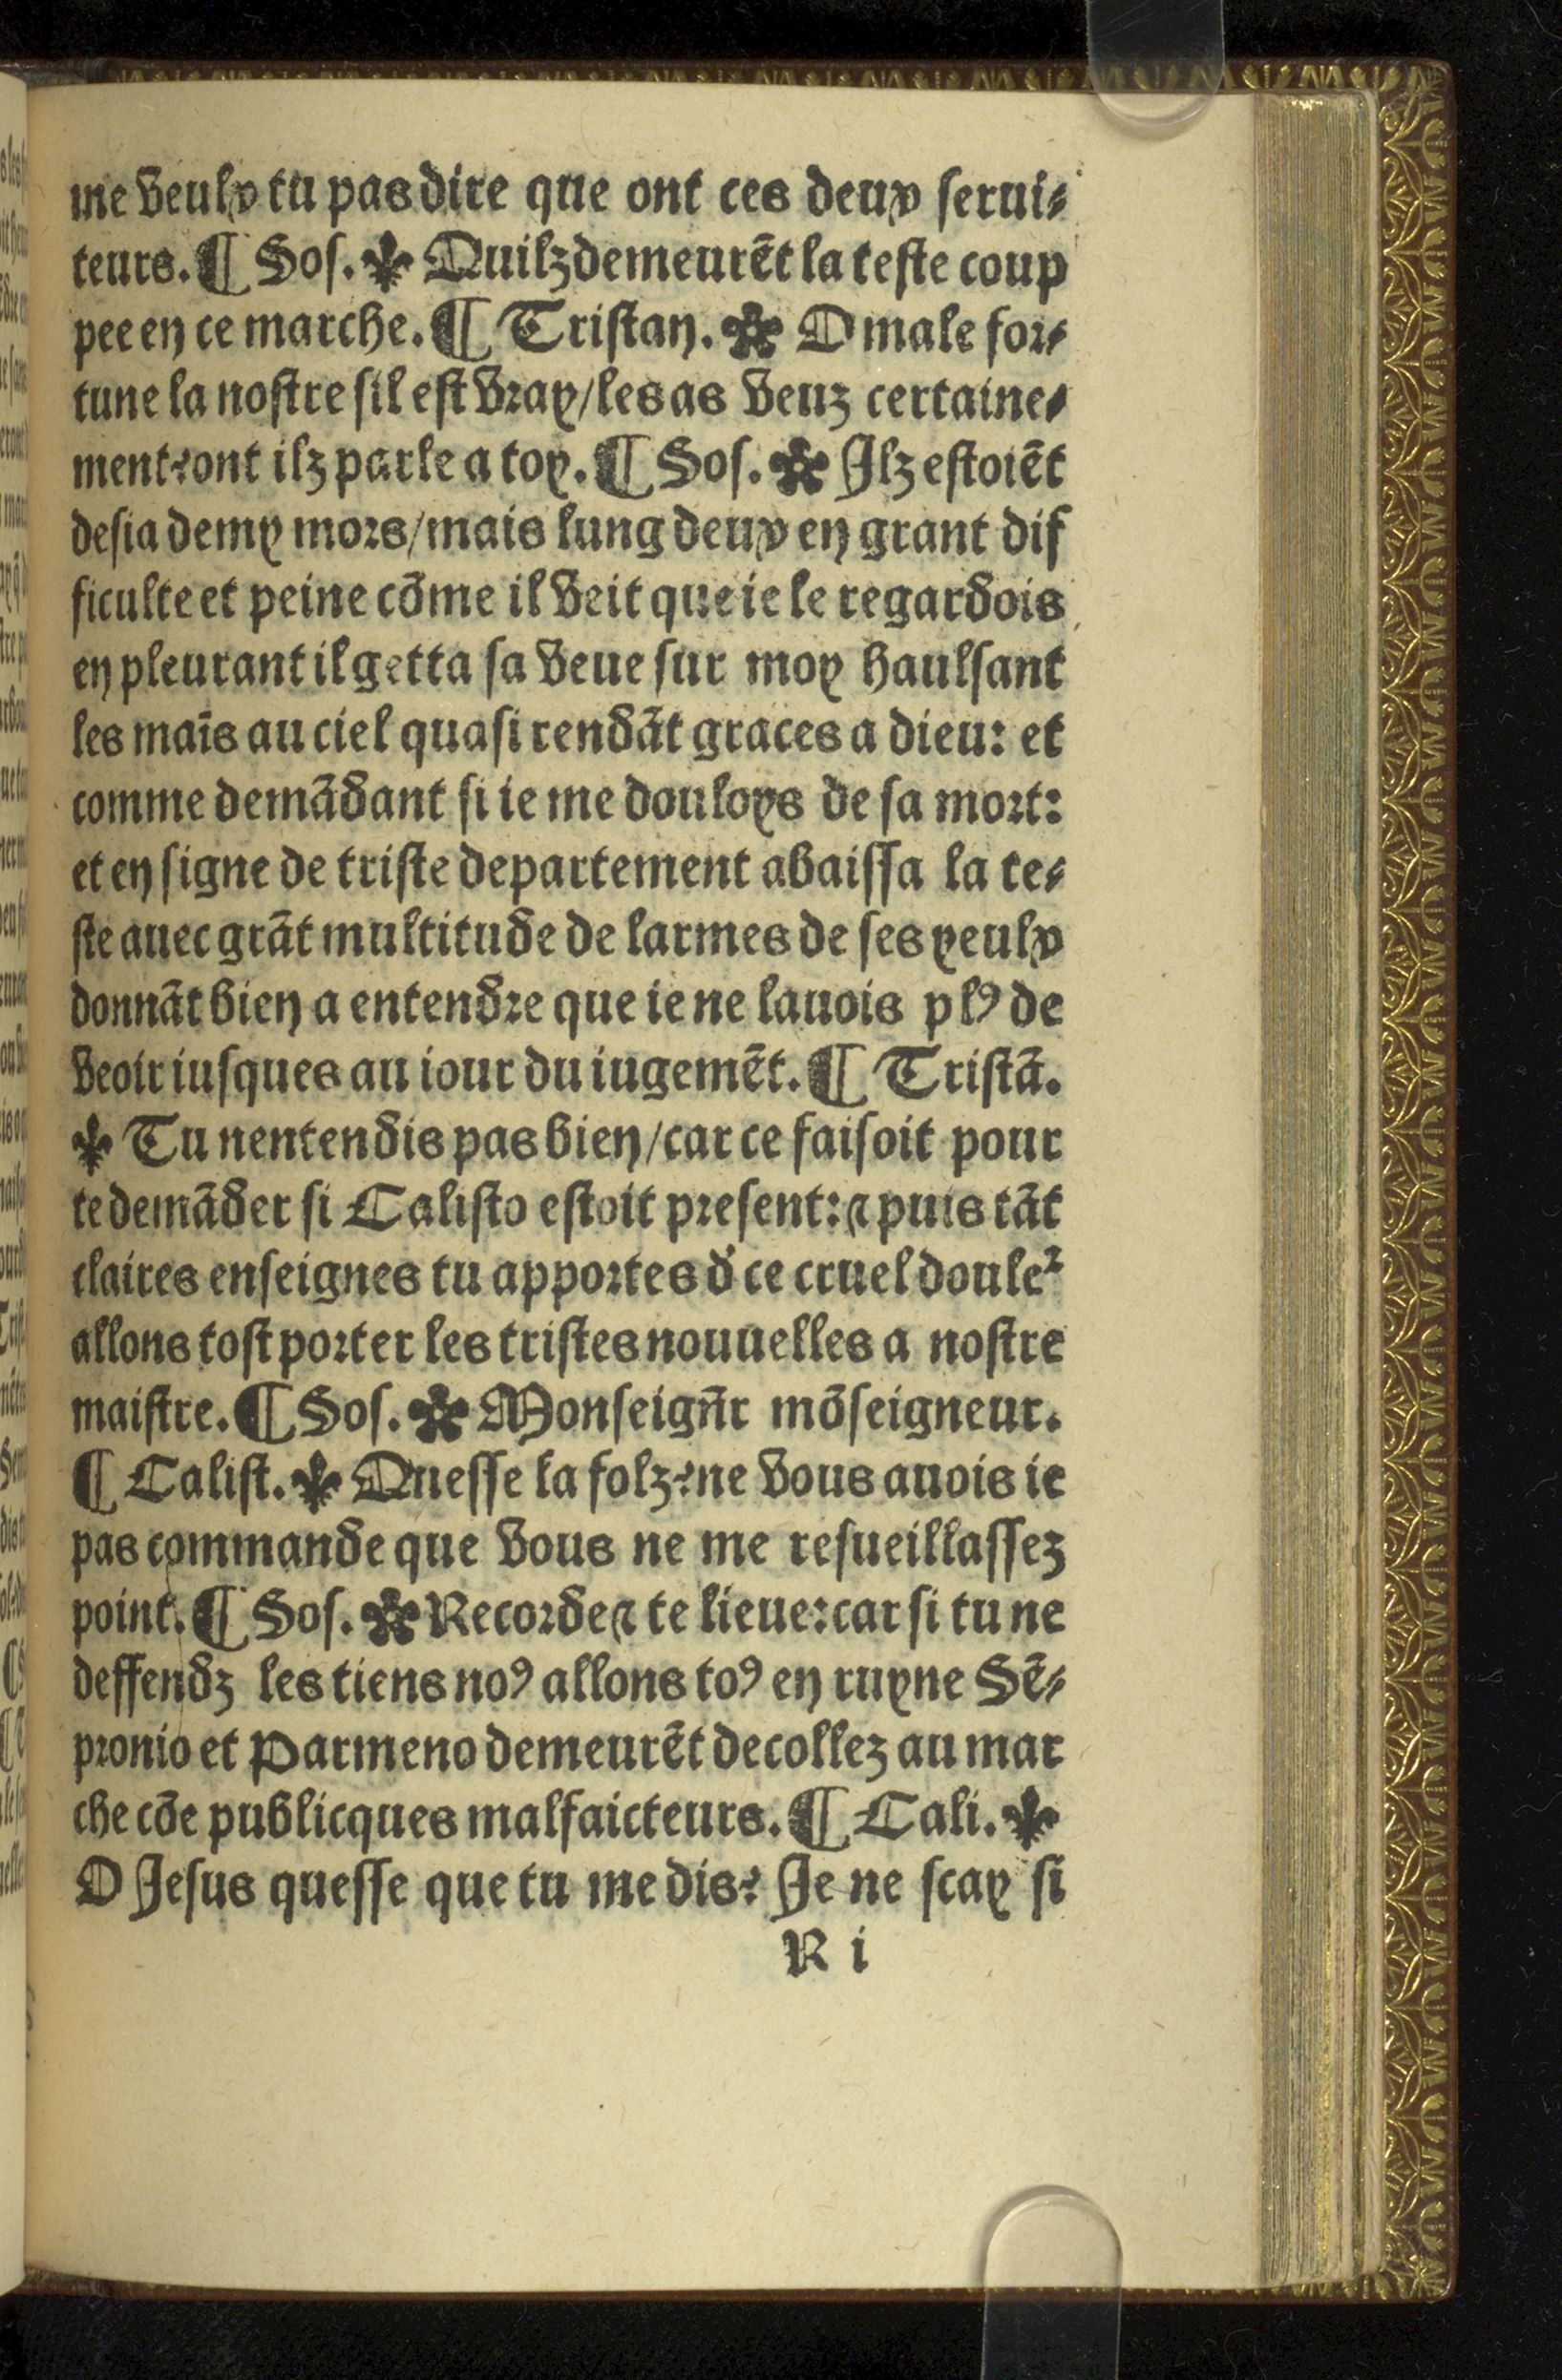 me veulx tu pas dire que ont ces deux serui⸗
teurs. ¶ Sos. ⚜ Quilz demeurẽt la teste coup
pee en ce marche. ¶ Tristan. ✽ O male for⸗
tune la nostre sil est vray/les as veuz certaine⸗
ment?ont ilz parle a toy. ¶ Sos. ✽ Ilz estoiẽt
desia demy mors/mais lung deux en grant dif
ficulte et peine cõme il veit que ie le regardois
en pleurant il getta sa veue sur moy haulsant
les maĩs au ciel quasi rendãt graces a dieu: et
comme demãdant si ie me douloys de sa mort:
et en signe de triste departement abaissa la te⸗
ste auec grãt multitude de larmes de ses yeulx
donnãt bien a entendre que ie ne lauois plꝯ de
veoir iusques au iour du iugemẽt. ¶ Tristã.
⚜ Tu nentendis pas bien/car ce faisoit pour
te demãder si Calisto estoit present: ⁊ puis tãt
claires enseignes tu apportes d̾ ce cruel douleᷣ
allons tost porter les tristes nouuelles a nostre
maistre. ¶ Sos. ✽ Monseigñr mõseigneur.
¶ Calist. ⚜ Quesse la folz?ne vous auois ie
pas commande que vous ne me resueillassez
point. ¶ Sos. ✽ Recorde ⁊ te lieue:car si tu ne
deffendz les tiens noꝯ allons toꝯ en ruyne Sẽ⸗
pronio et Parmeno demeurẽt decollez au mar
che cõe publicques malfaicteurs. ¶ Cali. ⚜
O Jesus quesse que tu me dis? Je ne scay si
R i